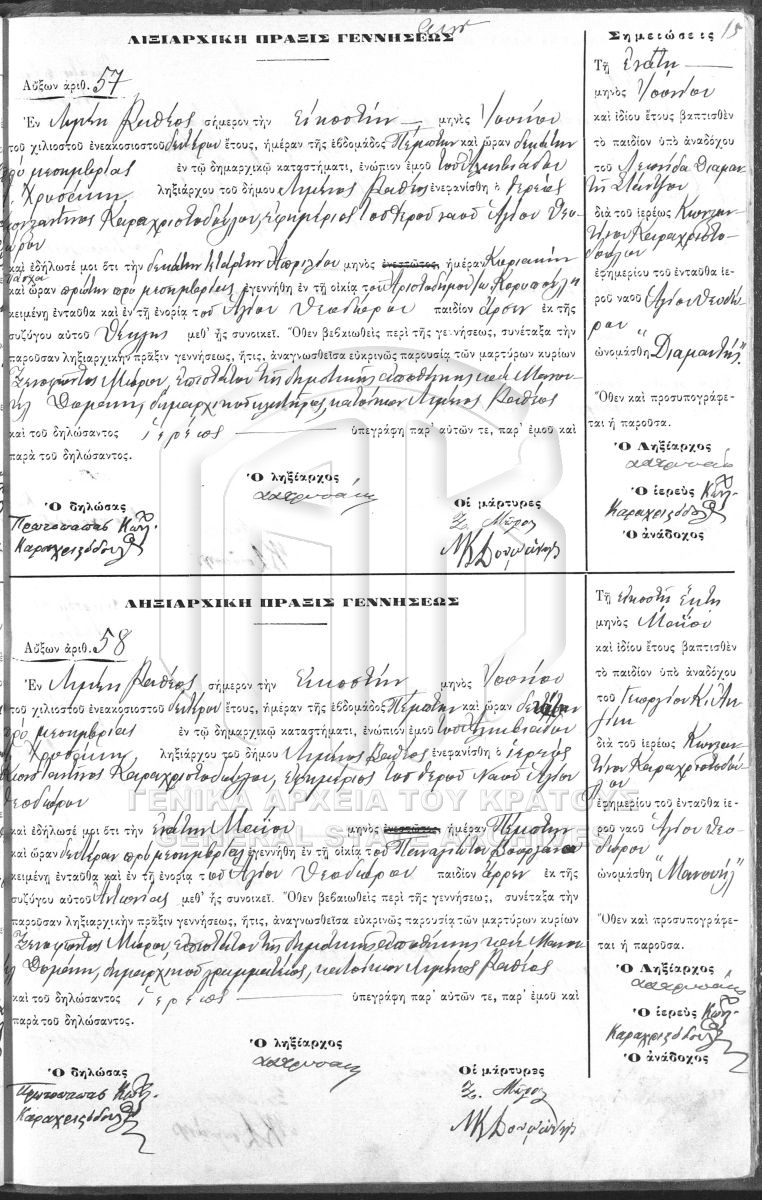 15
ΛΙΞΙΑΡΧΙΚΗ ΠΡΑΞΙΣ ΓΕΝΝΗΣΕΩΣ
Αὔξων ἀριθ. 57
Ἐν Λιμένι Βαθέος σήμερον τὴν εἰκοστήν μηνὸς Ἰουνίου
τοῦ χιλιοστοῦ ἐνεακοσιοστοῦ δευτέρου ἔτους, ἡμέραν τῆς ἑβδομάδος Πέμπτην καὶ ὥραν δεκάτην
πρὸ μεσημβρίας ἐν τῷ δημαρχικῷ καταστήματι, ἐνώπιον ἐμοῦ τοῦ Ἀλκιβιάδου
ληξιάρχου τοῦ δήμου Λιμένος Βαθέος ἐνεφανίσθη ὁ ἱερεὺς
Κωνσταντῖνος Καραχριστοδούλου, ἐφημέριος τοῦ ἱεροῦ ναοῦ Ἁγίου Θεο-
δώρου
καὶ ἐδήλωσέ μοι ὅτι τὴν δεκάτην τετάρτην Ἀπριλίου μηνὸς ἐνεστῶτος ἡμέραν Κυριακὴν
Πάσχα
καὶ ὥραν πρώτην πρὸ μεσημβρίας ἐγεννήθη ἐν τῇ οἰκίᾳ τοῦ Ἀριστοδήμου
κειμένῃ ἐνταῦθα καὶ ἐν τῇ ἐνορίᾳ τοῦ Ἁγίου Θεοδώρου παιδίον ἄρρεν ἐκ τῆς
συζύγου αὐτοῦ μεθ᾽ ἧς συνοικεῖ. Ὅθεν βεβαιωθεὶς περὶ τῆς γεννήσεως, συνέταξα τὴν
παροῦσαν ληξιαρχικὴν πρᾶξιν γεννήσεως, ἥτις, ἀναγνωσθεῖσα εὐκρινῶς παρουσίᾳ τῶν μαρτύρων κυρίων
Ξενοφῶντος Μώρου, ἐπιστάτου τῆς δημοτικῆς ἀποθήκης καὶ Μανου-
ὴλ δημαρχικοῦ κατοίκων Λιμένος Βαθέος
καὶ τοῦ δηλώσαντος ἱερέως ὑπεγράφη παρ᾽ αὐτῶν τε, παρ᾽ ἐμοῦ καὶ
παρὰ τοῦ δηλώσαντος.
Ὁ ληξίαρχος
Ὁ δηλώσας
Οἱ μάρτυρες
Πρωτοπαπας Κων.
Ξ. Μῶρος
Καραχριστοδούλου
Σημειώσεις
Τῇ ἐνάτῃ
μηνὸς Ἰουνίου
καὶ ἰδίου ἔτους βαπτισθὲν
τὸ παιδίον ὑπὸ ἀναδόχου
τοῦ Λεωνίδα Διαμαν-
διὰ τοῦ ἱερέως Κωνσταν-
τίνου Καραχριστο-
δούλου
ἐφημερίου τοῦ ἐνταῦθα ἱε-
ροῦ ναοῦ Ἁγίου Θεοδώ-
ρου
ὠνομάσθη "Διαμαντῆς".
Ὅθεν καὶ προσυπογράφε-
ται ἡ παροῦσα.
Ὁ Ληξίαρχος
Ὁ ἱερεὺς Κων.
Καραχριστοδούλου
Ὁ ἀνάδοχος
ΛΗΞΙΑΡΧΙΚΗ ΠΡΑΞΙΣ ΓΕΝΝΗΣΕΩΣ
Αὔξων ἀριθ. 58
Ἐν Λιμένι Βαθέος σήμερον τὴν εἰκοστήν μηνὸς Ἰουνίου
τοῦ χιλιοστοῦ ἐνεακοσιοστοῦ δευτέρου ἔτους, ἡμέραν τῆς ἑβδομάδος Πέμπτην καὶ ὥραν δεκάτην
πρὸ μεσημβρίας ἐν τῷ δημαρχικῷ καταστήματι, ἐνώπιον ἐμοῦ τοῦ Ἀλκιβιάδου
ληξιάρχου τοῦ δήμου Λιμένος Βαθέος ἐνεφανίσθη ὁ ἱερεὺς
Κωνσταντῖνος Καραχριστοδούλου, ἐφημέριος τοῦ ἱεροῦ Ναοῦ Ἁγίου
Θεοδώρου
ΓΕΝΙΚΑ ΑΡΧΕΙΑ ΤΟΥ ΚΡΑΤΟΥΣ
GENERAL STATE ARCHIVES
καὶ ἐδήλωσέ μοι ὅτι τὴν ἐνάτην Μαΐου μηνὸς ἐνεστῶτος ἡμέραν Πέμπτην
καὶ ὥραν δευτέραν πρὸ μεσημβρίας ἐγεννήθη ἐν τῇ οἰκίᾳ τοῦ Παναγιώτου
κειμένῃ ἐνταῦθα καὶ ἐν τῇ ἐνορίᾳ τοῦ Ἁγίου Θεοδώρου παιδίον ἄρρεν ἐκ τῆς
συζύγου αὐτοῦ Ἀντωνίας μεθ᾽ ἧς συνοικεῖ. Ὅθεν βεβαιωθεὶς περὶ τῆς γεννήσεως, συνέταξα τὴν
παροῦσαν ληξιαρχικὴν πρᾶξιν γεννήσεως, ἥτις, ἀναγνωσθεῖσα εὐκρινῶς παρουσίᾳ τῶν μαρτύρων κυρίων
Ξενοφῶντος Μώρου, ἐπιστάτου τῆς δημοτικῆς ἀποθήκης καὶ Μανου-
ὴλ δημαρχικοῦ γραμματέως, κατοίκων Λιμένος Βαθέος
καὶ τοῦ δηλώσαντος ἱερέως ὑπεγράφη παρ᾽ αὐτῶν τε, παρ᾽ ἐμοῦ καὶ
παρὰ τοῦ δηλώσαντος.
Ὁ ληξίαρχος
Ὁ δηλώσας
Οἱ μάρτυρες
Πρωτοπαπας Κων.
Ξ. Μῶρος
Καραχριστοδούλου
Τῇ εἰκοστῇ ἕκτῃ
μηνὸς Μαΐου
καὶ ἰδίου ἔτους βαπτισθὲν
τὸ παιδίον ὑπὸ ἀναδόχου
τοῦ Γεωργίου Κ.
διὰ τοῦ ἱερέως Κωνσταν-
τίνου Καραχριστοδού-
λου
ἐφημερίου τοῦ ἐνταῦθα ἱε-
ροῦ ναοῦ Ἁγίου Θεο-
δώρου
ὠνομάσθη "Μανουὴλ"
Ὅθεν καὶ προσυπογράφε-
ται ἡ παροῦσα.
Ὁ Ληξίαρχος
Ὁ ἱερεὺς Κων.
Καραχριστοδούλου
Ὁ ἀνάδοχος